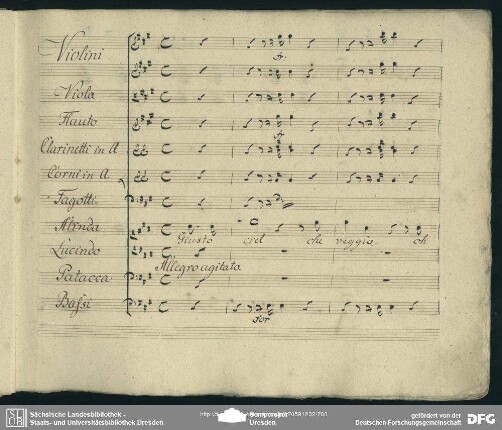 Violini
Viola
Flauto
Clarinetti in A
Corni in A
Fagotti
Alinda
Giusto ciel che veggio. oh
Lucindo
Allegro agitato
Patacca
Bassi
for
SLUB
Sächsische Landesbibliothek -
Staats- und Universitätsbibliothek Dresden
Dresden.
gefördert von der
Deutschen Forschungsgemeinschaft
DFG